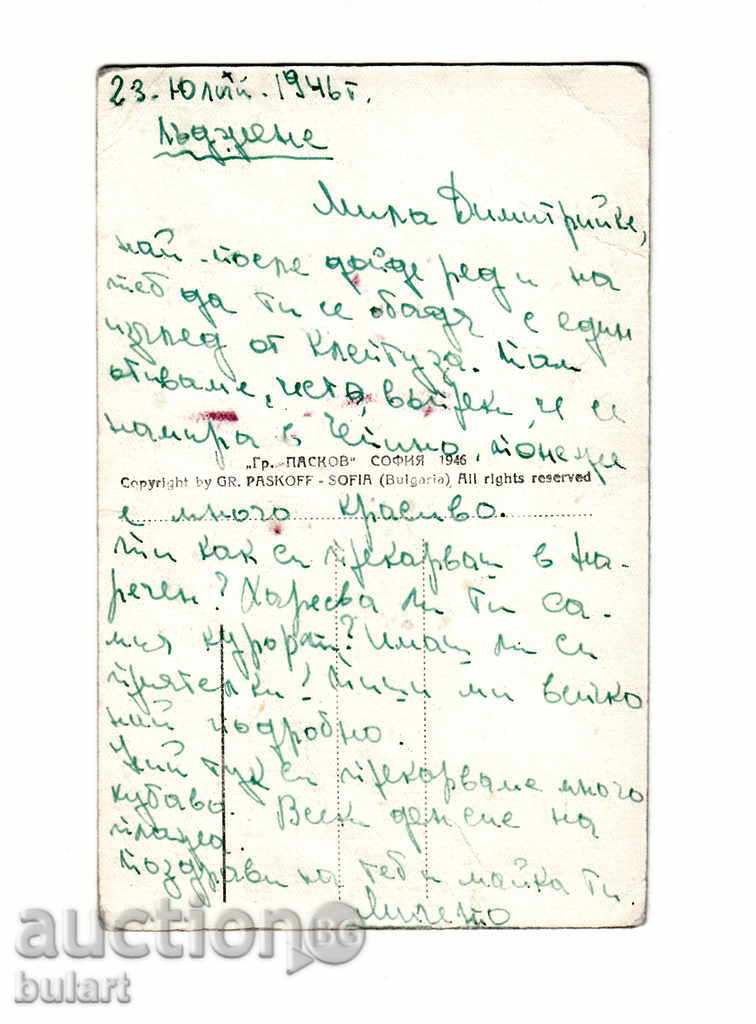 23. Юлий. 1946 г.
Лъджене
Мила Димитрийке,
най-после дойде ред и на
теб да ти се обадя с един
изглед от Клептуза. Там
отиваме често, въпреки, че се
намира в Чепино, понеже
„Гр. ПАСКОВ" СОФИЯ 1946
Copyright by GR. PASKOFF - SOFIA (Bulgaria) All rights reserved
е много красиво.
Ти как си прекарваш в На-
речен? Харесва ли ти са-
мия курорт? Имаш ли си
приятелки? Пиши ми всичко
най подробно.
Ний тук си прекарваме много
хубаво. Всеки ден сме на
плажа.
Поздрави на теб и майка ти.
auction BG
bulart